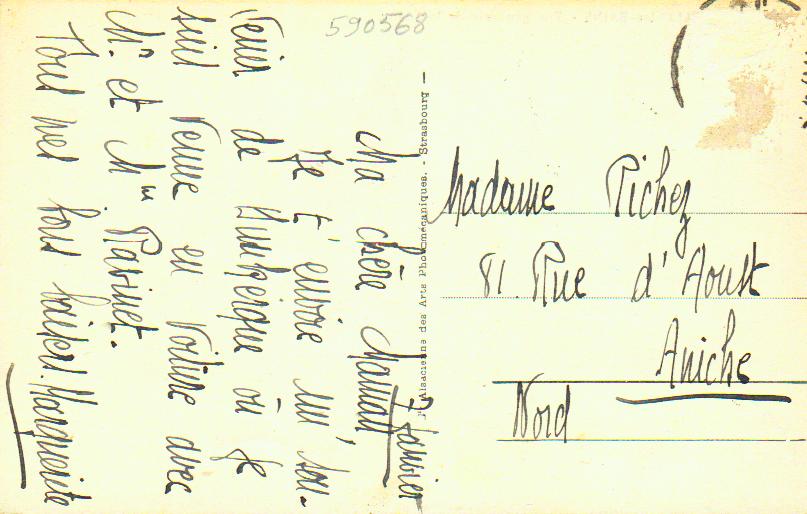 590568
Janvier
Ma chère Maman
Je t'envoie un' sou-
venir de Dunkerque où je
suis venue en voiture avec
Mr et Mme
Tous mes bons baisers. Marguerite
Alsacienne des Arts Photomécaniques. - Strasbourg —
Madame Pichez
81. Rue d'Aoust
Aniche
Nord